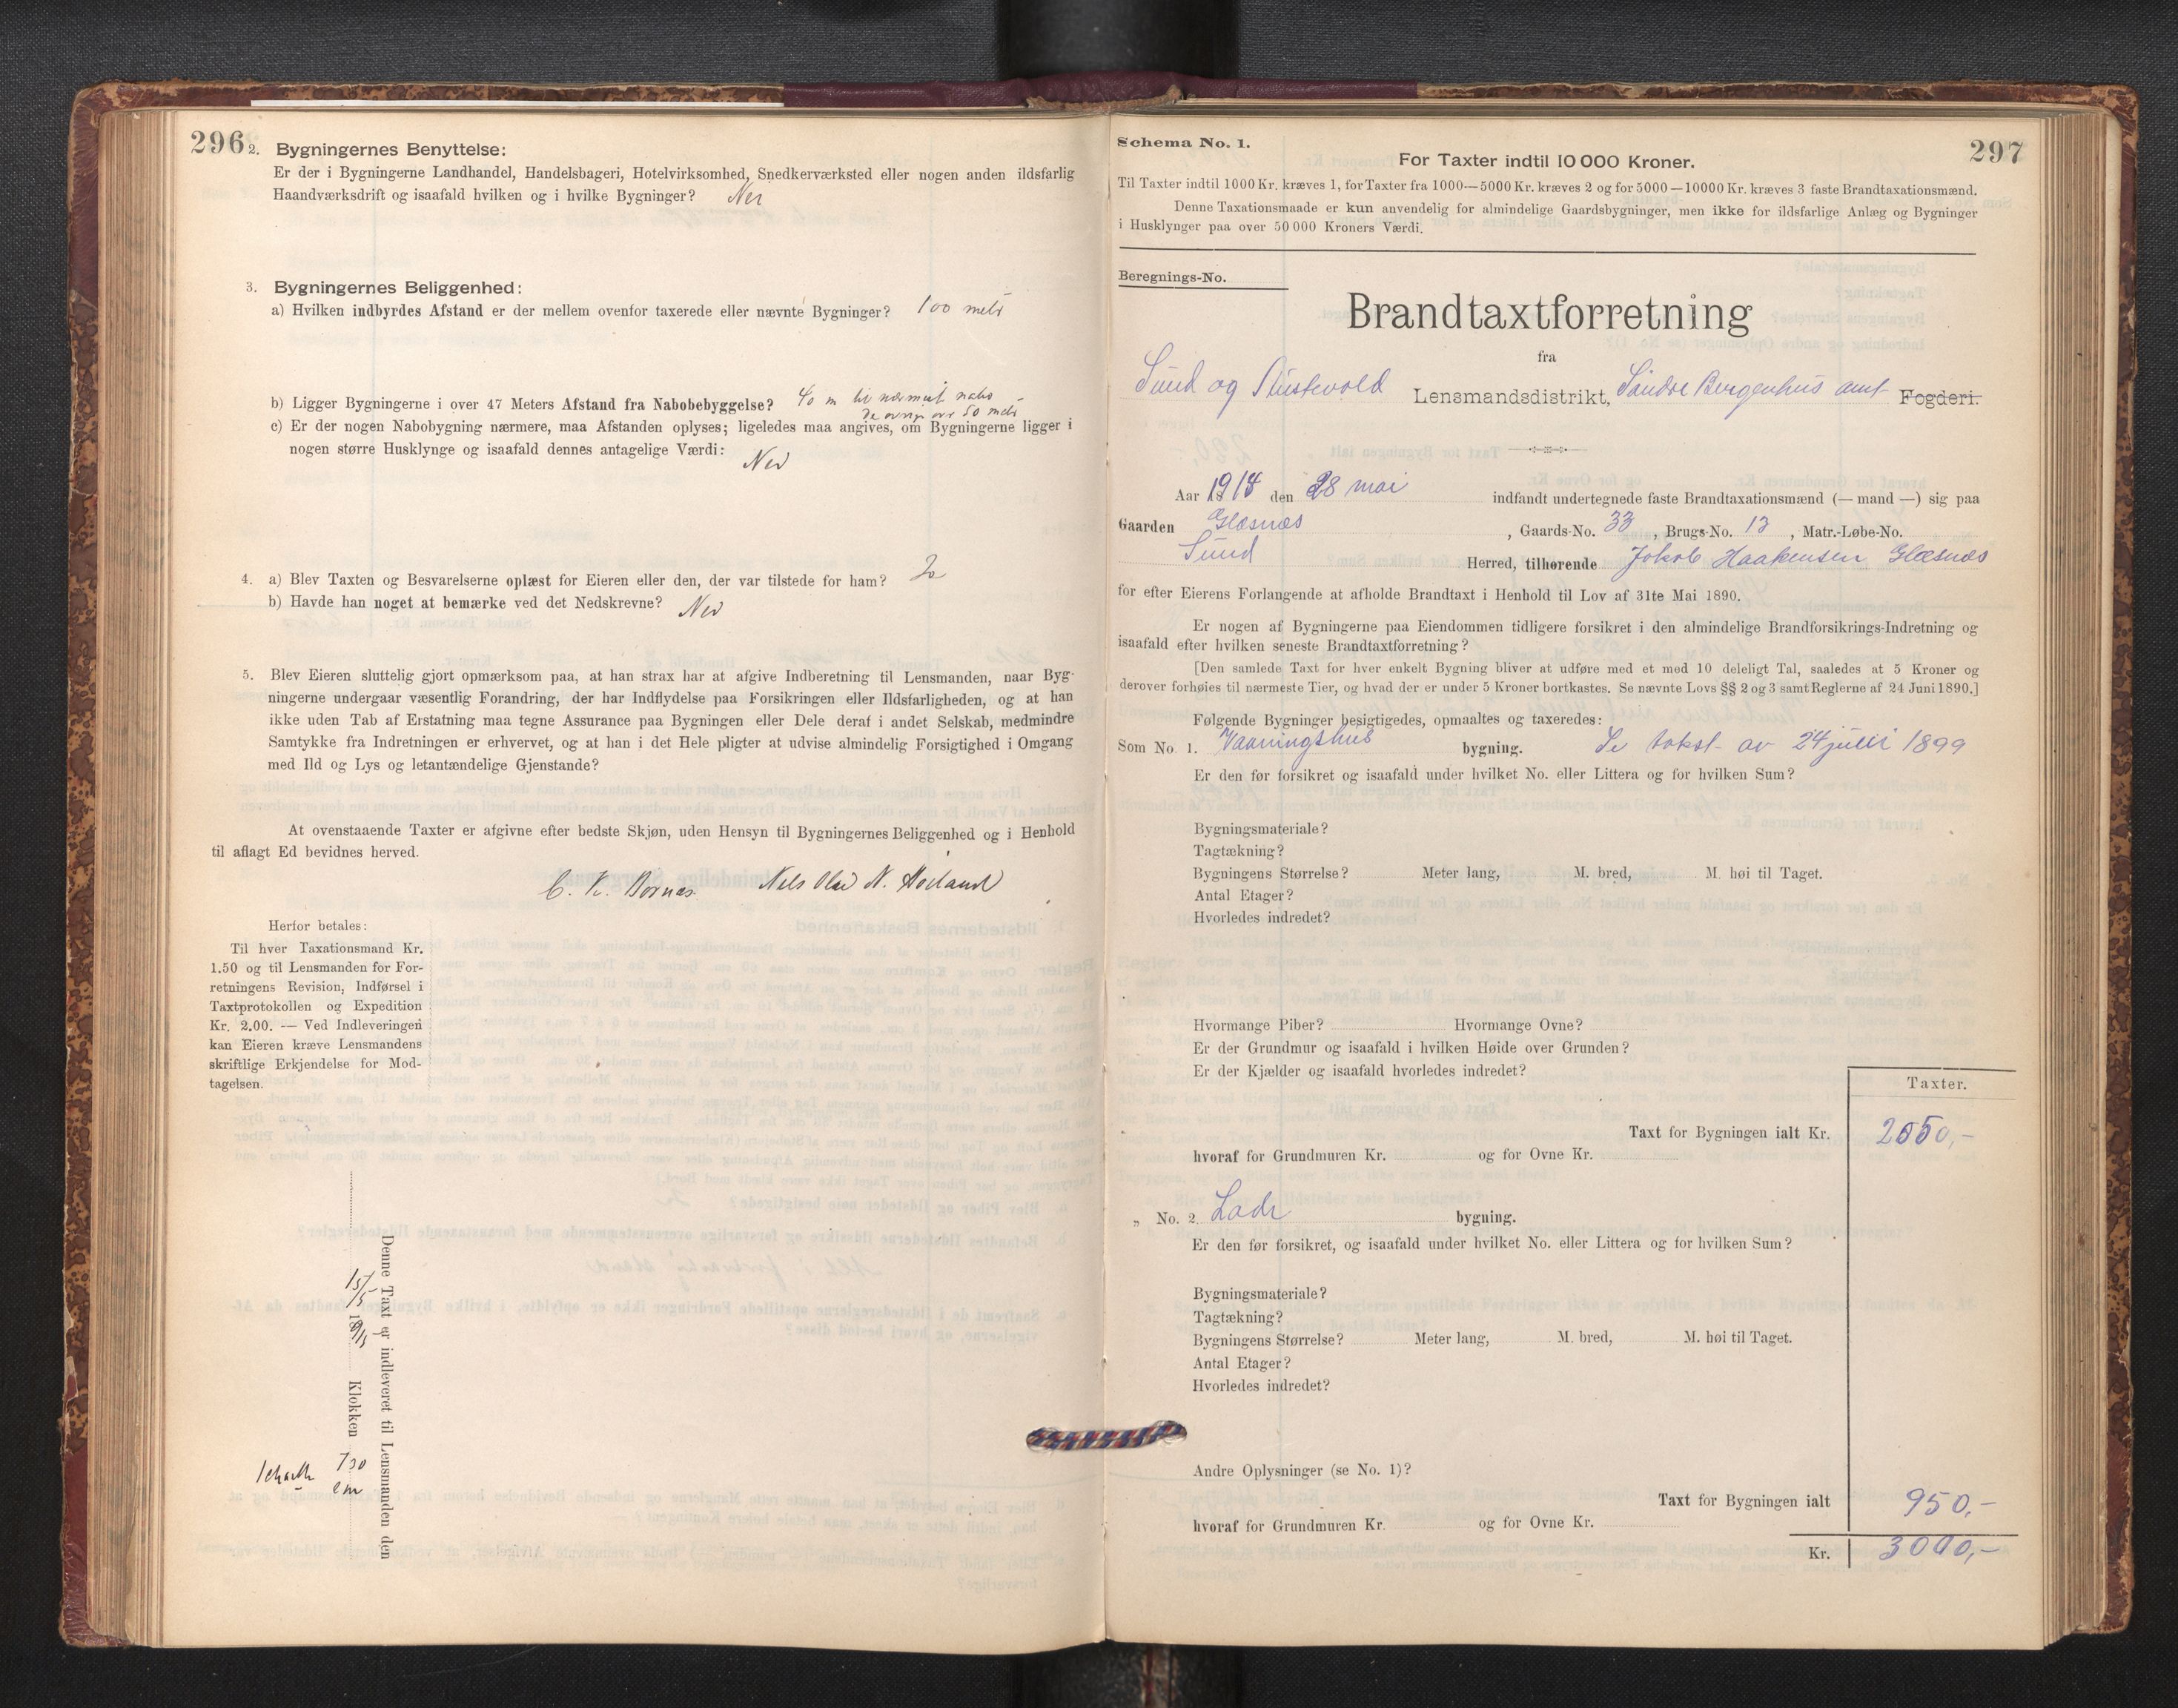 296
2. Bygningernes Benyttelse:
Er der i Bygningerne Landhandel, Handelsbageri, Hotelvirksomhed, Snedkerværksted eller nogen anden ildsfarlig
Haandværksdrift og isaafald hvilken og i hvilke Bygninger? Nei
3. Bygningernes Beliggenhed:
a) Hvilken indbyrdes Afstand er der mellem ovenfor taxerede eller nævnte Bygninger? 100 mets
b) Ligger Bygningerne i over 47 Meters Afstand fra Nabobebyggelse? 40 m til nærmest nabo
De øvrige over 50 mets
c) Er der nogen Nabobygning nærmere, maa Afstanden oplyses; ligeledes maa angives, om Bygningerne ligger i
nogen større Husklynge og isaafald dennes antagelige Værdi:
Nei
4. a) Blev Taxten og Besvarelserne oplæst for Eieren eller den, der var tilstede for ham? Ja
b) Havde han noget at bemærke ved det Nedskrevne? Nei
5. Blev Eieren sluttelig gjort opmærksom paa, at han strax har at afgive Indberetning til Lensmanden, naar Byg-
ningerne undergaar væsentlig Forandring, der har Indflydelse paa Forsikringen eller Ildsfarligheden, og at han
ikke uden Tab af Erstatning maa tegne Assurance paa Bygningen eller Dele deraf i andet Selskab, medmindre
Samtykke fra Indretningen er erhvervet, og at han i det Hele pligter at udvise almindelig Forsigtighed i Omgang
med Ild og Lys og letantændelige Gjenstande?
At ovenstaaende Taxter er afgivne efter bedste Skjøn, uden Hensyn til Bygningernes Beliggenhed og i Henhold
til aflagt Ed bevidnes herved.
Nels Olai N. Høiland
Herfor betales:
Til hver Taxationsmand Kr.
1.50 og til Lensmanden for For-
retningens Revision, Indførsel i
Taxtprotokollen og Expedition
Kr. 2.00. — Ved Indleveringen
kan Eieren kræve Lensmandens
skriftlige Erkjendelse for Mod-
tagelsen.
Denne Taxt er indleveret til Lensmanden den
15/5 Klokken 730
em
297
Schema No. 1.
For Taxter indtil 10 000 Kroner.
Til Taxter indtil 1000 Kr. kræves 1, for Taxter fra 1000—5000 Kr. kræves 2 og for 5000—10000 Kr. kræves 3 faste Brandtaxationsmænd.
Denne Taxationsmaade er kun anvendelig for almindelige Gaardsbygninger, men ikke for ildsfarlige Anlæg og Bygninger
i Husklynger paa over 50 000 Kroners Værdi.
Beregnings-No.
Brandtaxtforretning
fra
Sund og Austevold Lensmandsdistrikt, Søndre Bergenhus amt Fogderi.
Aar 1918 den 28 mai indfandt undertegnede faste Brandtaxationsmænd (— mand —) sig paa
Gaarden Glesnæs, Gaards-No. 33, Brugs-No. 13, Matr.-Løbe-No.
Sund Herred, tilhørende Jakob Haakensen Glesnæs
for efter Eierens Forlangende at afholde Brandtaxt i Henhold til Lov af 31te Mai 1890.
Er nogen af Bygningerne paa Eiendommen tidligere forsikret i den almindelige Brandforsikrings-Indretning og
isaafald efter hvilken seneste Brandtaxtforretning?
[Den samlede Taxt for hver enkelt Bygning bliver at udføre med et med 10 deleligt Tal, saaledes at 5 Kroner og
derover forhøies til nærmeste Tier, og hvad der er under 5 Kroner bortkastes. Se nævnte Lovs §§ 2 og 3 samt Reglerne af 24 Juni 1890.]
Følgende Bygninger besigtigedes, opmaaltes og taxeredes:
Som No. 1. Vaaningshus bygning. Se takst av 24 juli 1899
Er den før forsikret og isaafald under hvilket No. eller Littera og for hvilken Sum?
Bygningsmateriale?
Tagtækning?
Bygningens Størrelse? Meter lang, M. bred, M. høi til Taget.
Antal Etager?
Hvorledes indredet?
Hvormange Piber? Hvormange Ovne?
Er der Grundmur og isaafald i hvilken Høide over Grunden?
Er der Kjælder og isaafald hvorledes indredet?
Taxter.
Taxt for Bygningen ialt Kr. 2050,-
hvoraf for Grundmuren Kr. og for Ovne Kr.
„ No. 2. Lade bygning.
Er den før forsikret, og isaafald under hvilket No. eller Littera og for hvilken Sum?
Bygningsmateriale?
Tagtækning?
Bygningens Størrelse? Meter lang, M. bred, M. høi til Taget.
Antal Etager?
Hvorledes indredet?
Andre Oplysninger (se No. 1)?
Taxt for Bygningen ialt 950,-
hvoraf for Grundmuren Kr. og for Ovne Kr.
Kr. 3000,-